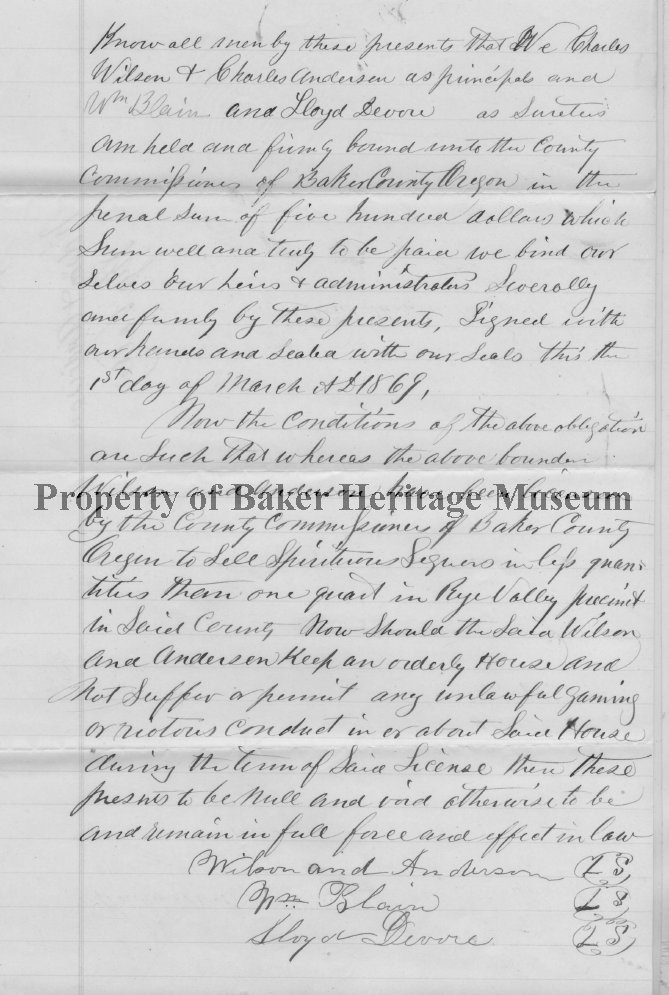 Know all men by these presents That We Charles
Wilson & Charles Anderson as principals and
Wm Blain and Lloyd Devore as Sureties
am held and firmly bound unto the County
Commissioners of Baker County Oregon in the
penal Sum of five hundred dollars which
Sum well and truly to be paid we bind our
selves our heirs & administrators Severally
and firmly by these presents, Signed with
our hands and Sealed with our Seals this the
1st day of March AD 1869,
Now the Conditions of the above obligation
are Such that whereas the above bounden
Wilson and Anderson have been
Property of Baker Heritage Museum
by the County Commissioners of Baker County
Oregon to Sell Spirituous Liquors in less quan-
tities than one quart in Rye Valley precinct
in Said County Now Should the Said Wilson
and Anderson Keep an orderly House and
not Suffer or permit any unlawful Gaming
or riotous Conduct in or about Said House
during the Term of Said License then these
presents to be Null and void otherwise to be
and remain in full force and effect in law
Wilson and Anderson (LS)
Wm Blain (LS)
Lloyd Devore (LS)